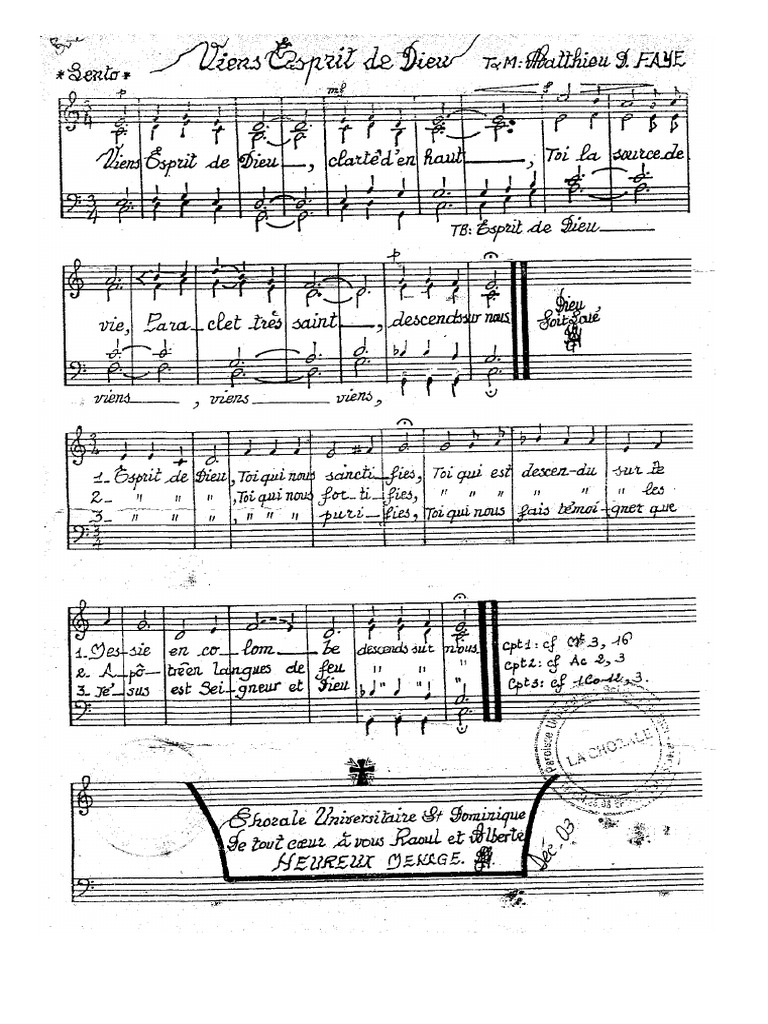 Viens Esprit de Dieu
T&M: Matthieu D. FAYE
*Lento*
p mf f
Viens Esprit de Dieu___, clarté d'en haut___, Toi la source de
TB: Esprit de Dieu___
p
vie, Para_clet très saint___, descends sur nous
Dieu
Soit Loué
viens___, viens___ viens,
1_ Esprit de Dieu, Toi qui nous sancti_fies, Toi qui est descen-du sur le
2_ " " " , Toi qui nous for_ti_fies, " " " " " les
3_ " " " , " " " puri_fies, Toi qui nous fais témoi_gner que
1_ Mes-sie en co_lom___be descends sur nous
2_ A_pô_tre en langues de feu " " "
3_ Jé_sus est Sei_gneur et Dieu " " "
Cpt1: cf Mt 3, 16
Cpt2: cf Ac 2, 3
Cpt3: cf 1Co 12, 3.
Paroisse Univers
LA CHORALE
Chorale Universitaire St Dominique
De tout cœur à vous Raoul et Alberte
HEUREUX MENAGE.
Déc. 03